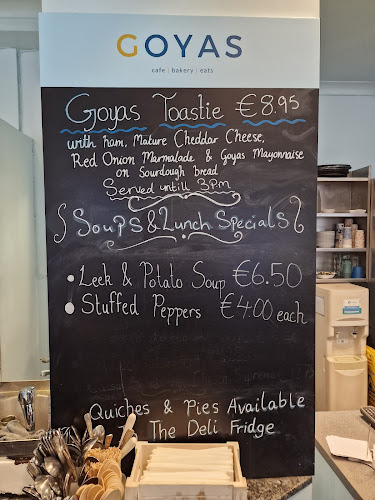 GOYAS
cafe | bakery | eats
Goyas Toastie €8.95
with ham, Mature Cheddar Cheese,
Red Onion Marmalade & Goyas Mayonnaise
on Sourdough bread
Served untill 3pm
Soups & Lunch Specials
• Leek & Potato Soup €6.50
• Stuffed Peppers €4.00 each
Quiches & Pies Available
In The Deli Fridge